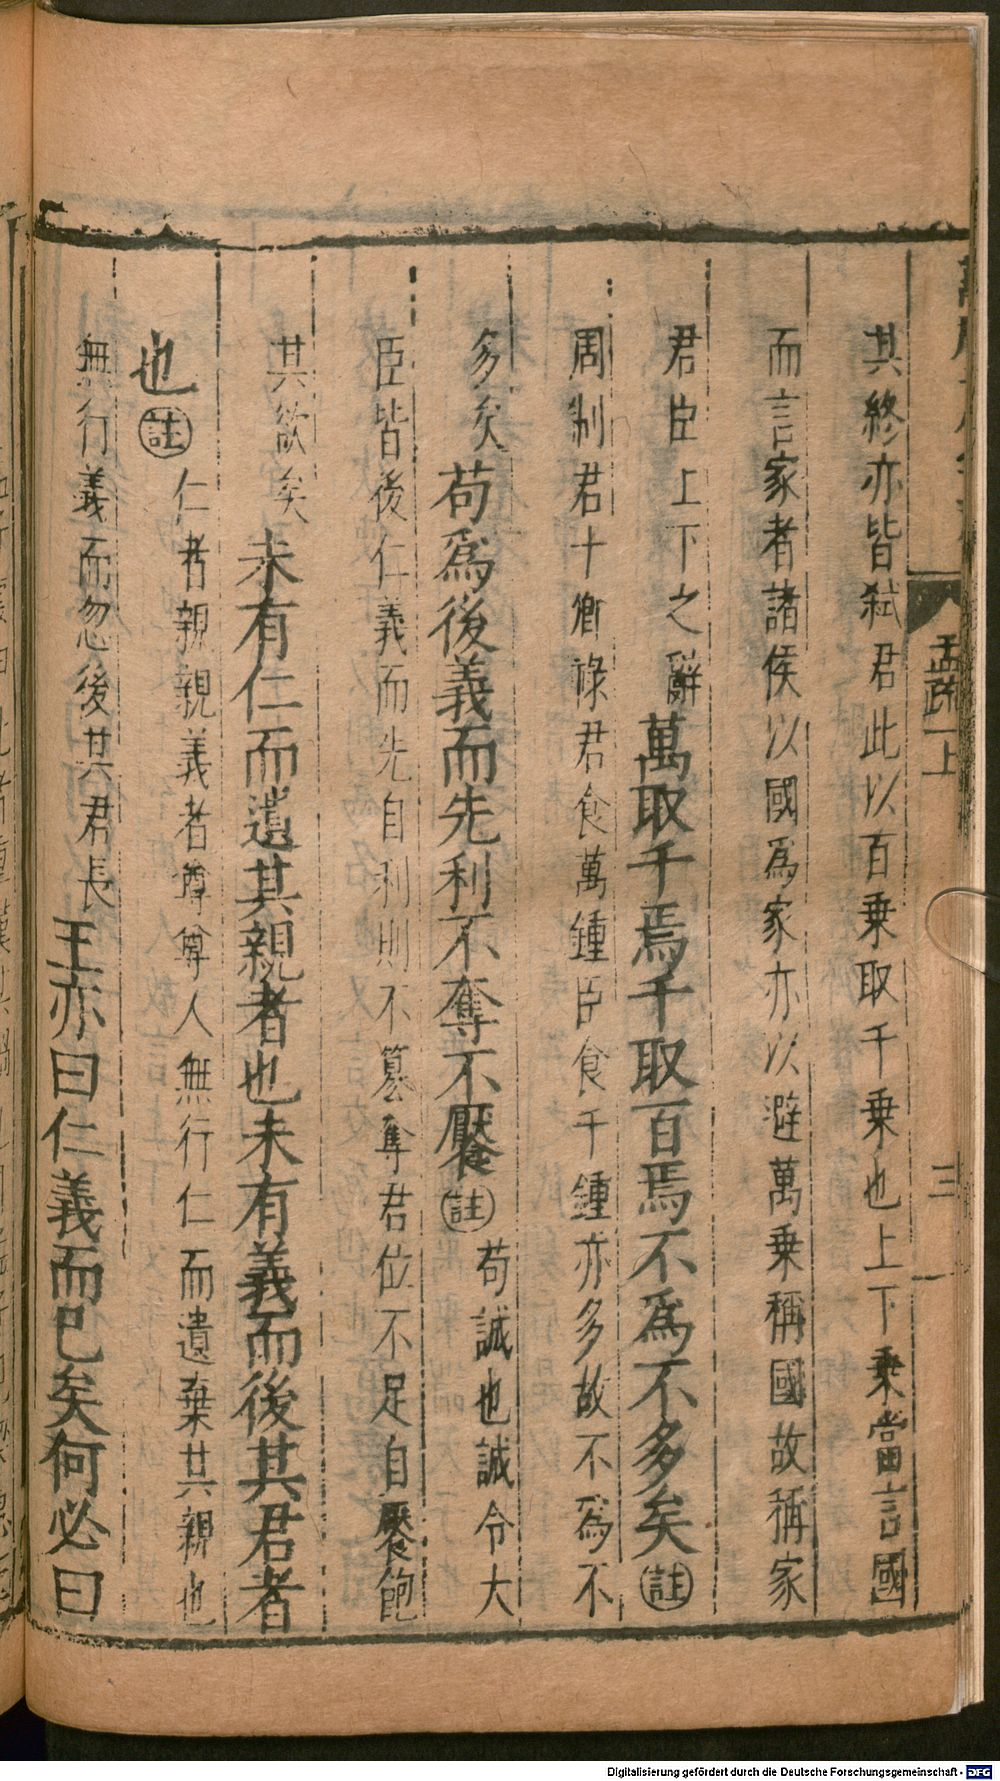 孟疏一上
三
其終亦皆弑君此以百乗取千乗也上下乗當言國
而言家者諸侯以國爲家亦以避萬乗稱國故稱家
君臣上下之辭萬取千焉千取百焉不爲不多矣註
周制君十卿祿君食萬鍾臣食千鍾亦多故不爲不
多矣苟爲後義而先利不奪不饜註苟誠也誠令大
臣皆後仁義而先自利則不簒奪君位不足自饜飽
其欲矣未有仁而遺其親者也未有義而後其君者
也註仁者親親義者尊尊人無行仁而遺棄其親也
無行義而忽後其君長王亦曰仁義而已矣何必曰
Digitalisierung gefördert durch die Deutsche Forschungsgemeinschaft - DFG